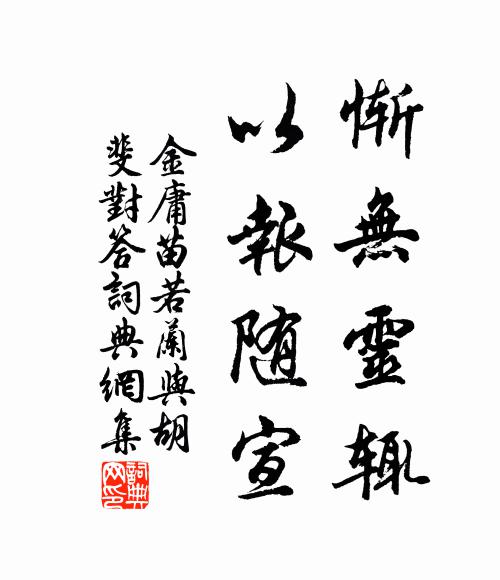 慚無靈輒
以報随宣
金庸苗若蘭與胡
斐對答詞典網集
詞典
网印